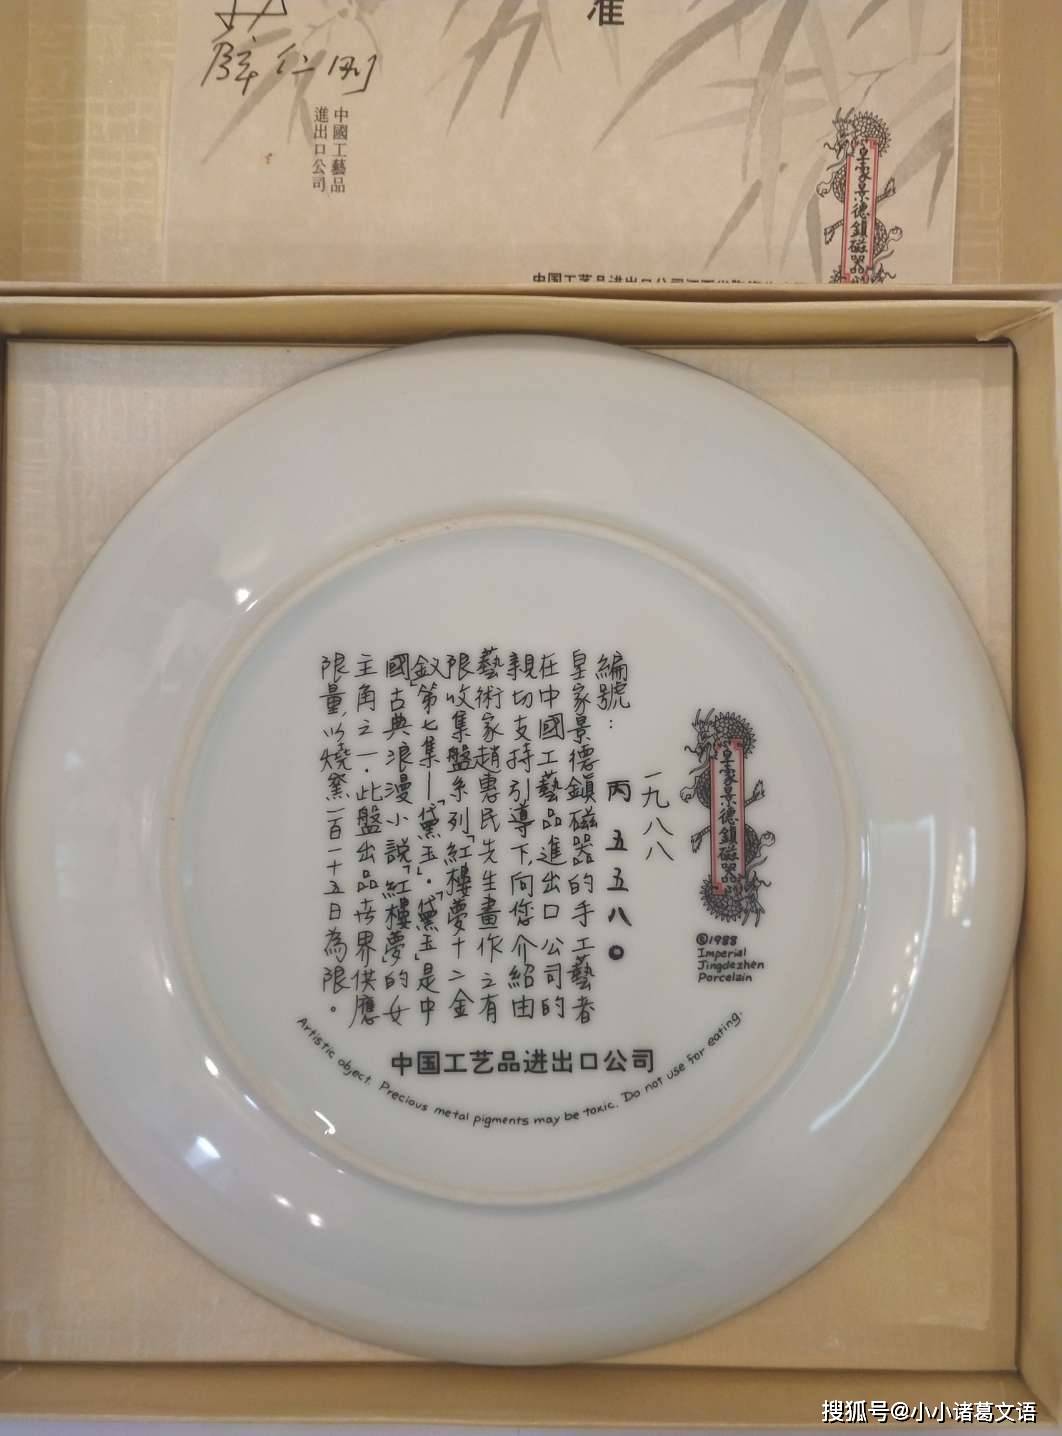 准
薛仁刚
中國工藝品
進出口公司
皇家景德鎮磁器
一九八八
編號:丙五五八〇
皇家景德鎮磁器的手工藝者
在中國工藝品進出口公司的
親切支持引導下,向您介紹由
藝術家趙惠民先生畫作之有
限收集盤系列「紅樓夢十二金
釵」第七集—「黛玉」·「黛玉」是中
國古典浪漫小説「紅樓夢」的女
主角之一·此盤出品世界供應
限量,以燒窯一百一十五日為限。
皇家景德鎮磁器
©1988
Imperial
Jingdezhen
Porcelain
中国工艺品进出口公司
Artistic object. Precious metal pigments may be toxic. Do not use for eating.
搜狐号@小小诸葛文语